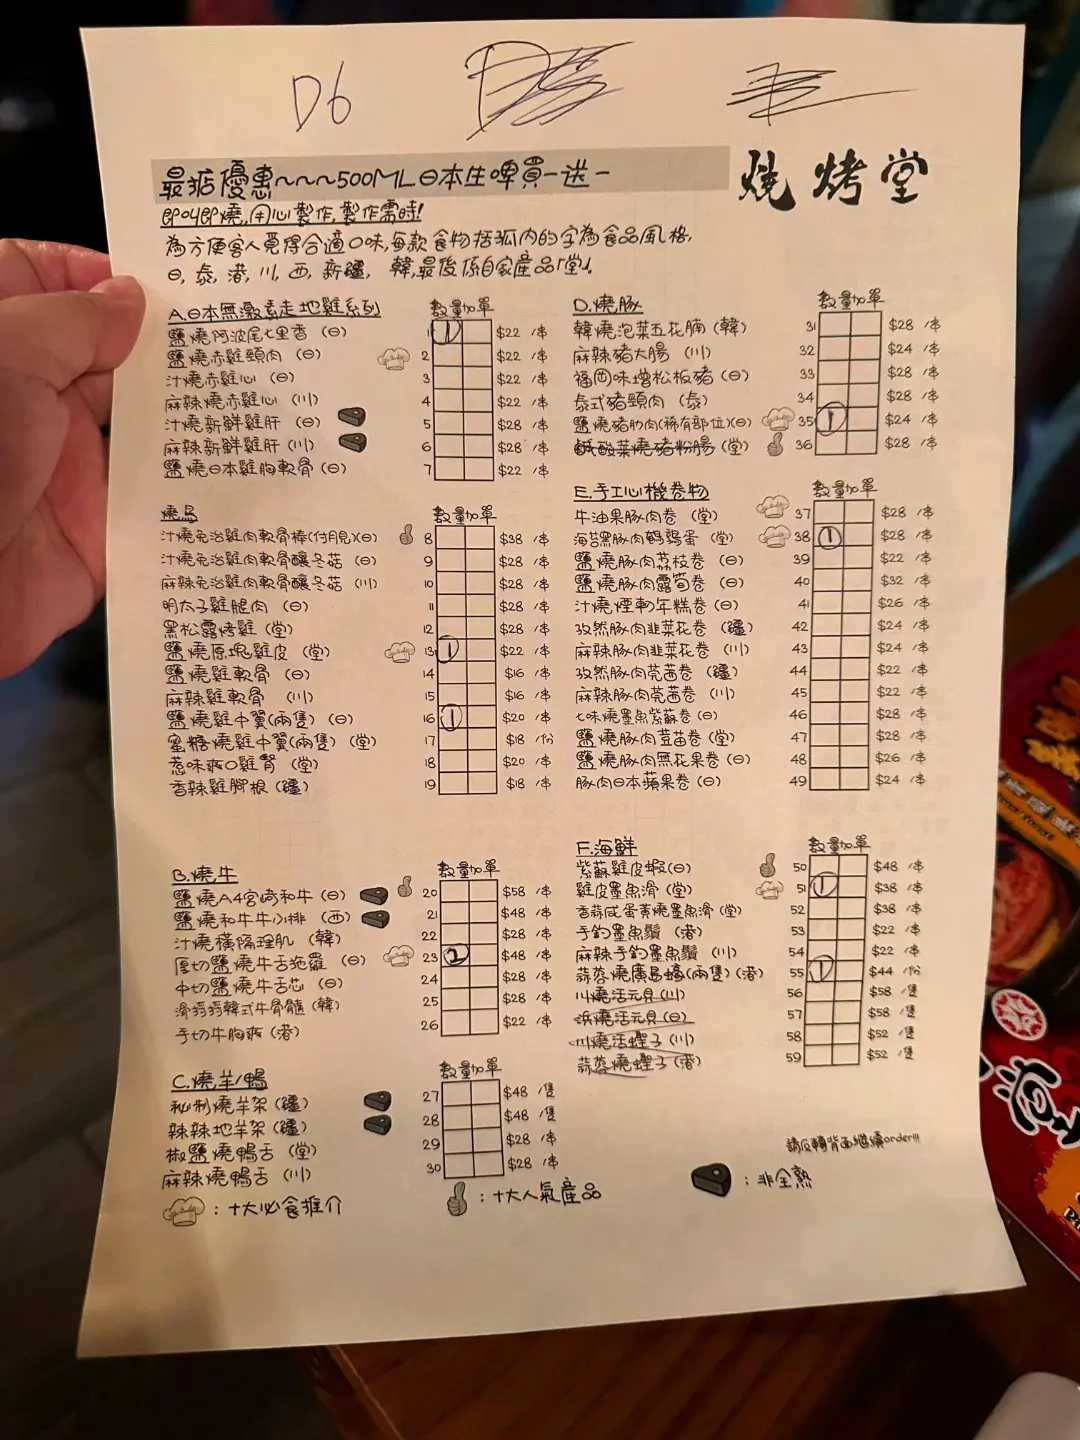 D6
最掂優惠~~~500ML日本生啤買一送一
燒烤堂
即叫即燒,用心製作,製作需時!
為方便客人覓得合適口味,每款食物括弧內的字為食品風格,
日, 泰, 港, 川, 西, 新疆, 韓,最後係自家產品「堂」.
A.日本無激素走地雞系列 數量加單
鹽燒阿波尾七里香 (日) 1 ① $22 /串
鹽燒赤雞頸肉 (日) 2 $22 /串
汁燒赤雞心 (日) 3 $22 /串
麻辣燒赤雞心 (川) 4 $22 /串
汁燒新鮮雞肝 (日) 5 $28 /串
麻辣新鮮雞肝 (川) 6 $28 /串
鹽燒日本雞胸軟骨 (日) 7 $22 /串
燒鳥 數量加單
汁燒免治雞肉軟骨棒(付月見)(日) 8 $38 /串
汁燒免治雞肉軟骨釀冬菇 (日) 9 $28 /串
麻辣免治雞肉軟骨釀冬菇 (川) 10 $28 /串
明太子雞腿肉 (日) 11 $28 /串
黑松露烤雞 (堂) 12 $28 /串
鹽燒原塊雞皮 (堂) 13 ① $22 /串
鹽燒雞軟骨 (日) 14 $16 /串
麻辣雞軟骨 (川) 15 $16 /串
鹽燒雞中翼(兩隻) (日) 16 ① $20 /串
蜜糖燒雞中翼(兩隻) (堂) 17 $18 /份
惹味爽口雞腎 (堂) 18 $20 /串
香辣雞腳根 (疆) 19 $18 /串
B.燒牛 數量加單
鹽燒A4宮崎和牛 (日) 20 $58 /串
鹽燒和牛牛小排 (西) 21 $48 /串
汁燒橫隔理肌 (韓) 22 $28 /串
厚切鹽燒牛舌拖羅 (日) 23 ② $48 /串
中切鹽燒牛舌芯 (日) 24 $28 /串
滑捋捋韓式牛骨髓 (韓) 25 $28 /串
手切牛胸爽 (港) 26 $22 /串
C.燒羊/鴨 數量加單
秘制燒羊架 (疆) 27 $48 /隻
辣辣地羊架 (疆) 28 $48 /隻
椒鹽燒鴨舌 (堂) 29 $28 /串
麻辣燒鴨舌 (川) 30 $28 /串
D.燒豚 數量加單
韓燒泡菜五花腩 (韓) 31 $28 /串
麻辣豬大腸 (川) 32 $24 /串
福岡味增松板豬 (日) 33 $28 /串
泰式豬頸肉 (泰) 34 $28 /串
鹽燒豬肋肉(稀有部位)(日) 35 ① $24 /串
鹹酸菜燒豬粉腸 (堂) 36 $28 /串
E.手工心機卷物 數量加單
牛油果豚肉卷 (堂) 37 $28 /串
海苔黑豚肉鵪鶉蛋 (堂) 38 ① $28 /串
鹽燒豚肉荔枝卷 (日) 39 $22 /串
鹽燒豚肉露筍卷 (日) 40 $32 /串
汁燒煙韌年糕卷 (日) 41 $26 /串
孜然豚肉韭菜花卷 (疆) 42 $24 /串
麻辣豚肉韭菜花卷 (川) 43 $24 /串
孜然豚肉芫茜卷 (疆) 44 $22 /串
麻辣豚肉芫茜卷 (川) 45 $22 /串
七味燒墨魚紫蘇卷 (日) 46 $28 /串
鹽燒豚肉荳苗卷 (堂) 47 $28 /串
鹽燒豚肉無花果卷 (日) 48 $26 /串
豚肉日本蘋果卷 (日) 49 $24 /串
F.海鮮 數量加單
紫蘇雞皮蝦(日) 50 $48 /串
雞皮墨魚滑 (堂) 51 ① $38 /串
香蒜咸蛋黃燒墨魚滑 (堂) 52 $38 /串
手釣墨魚鬚 (港) 53 $22 /串
麻辣手釣墨魚鬚 (川) 54 $22 /串
蒜蓉燒廣島蠔(兩隻) (港) 55 ① $44 /份
川燒活元貝 (川) 56 $58 /隻
浜燒活元貝 (日) 57 $58 /隻
川燒活蟶子 (川) 58 $52 /隻
蒜蓉燒蟶子 (港) 59 $52 /隻
請反轉背面繼續order!!!
:十大必食推介 :十大人氣產品 :非全熟